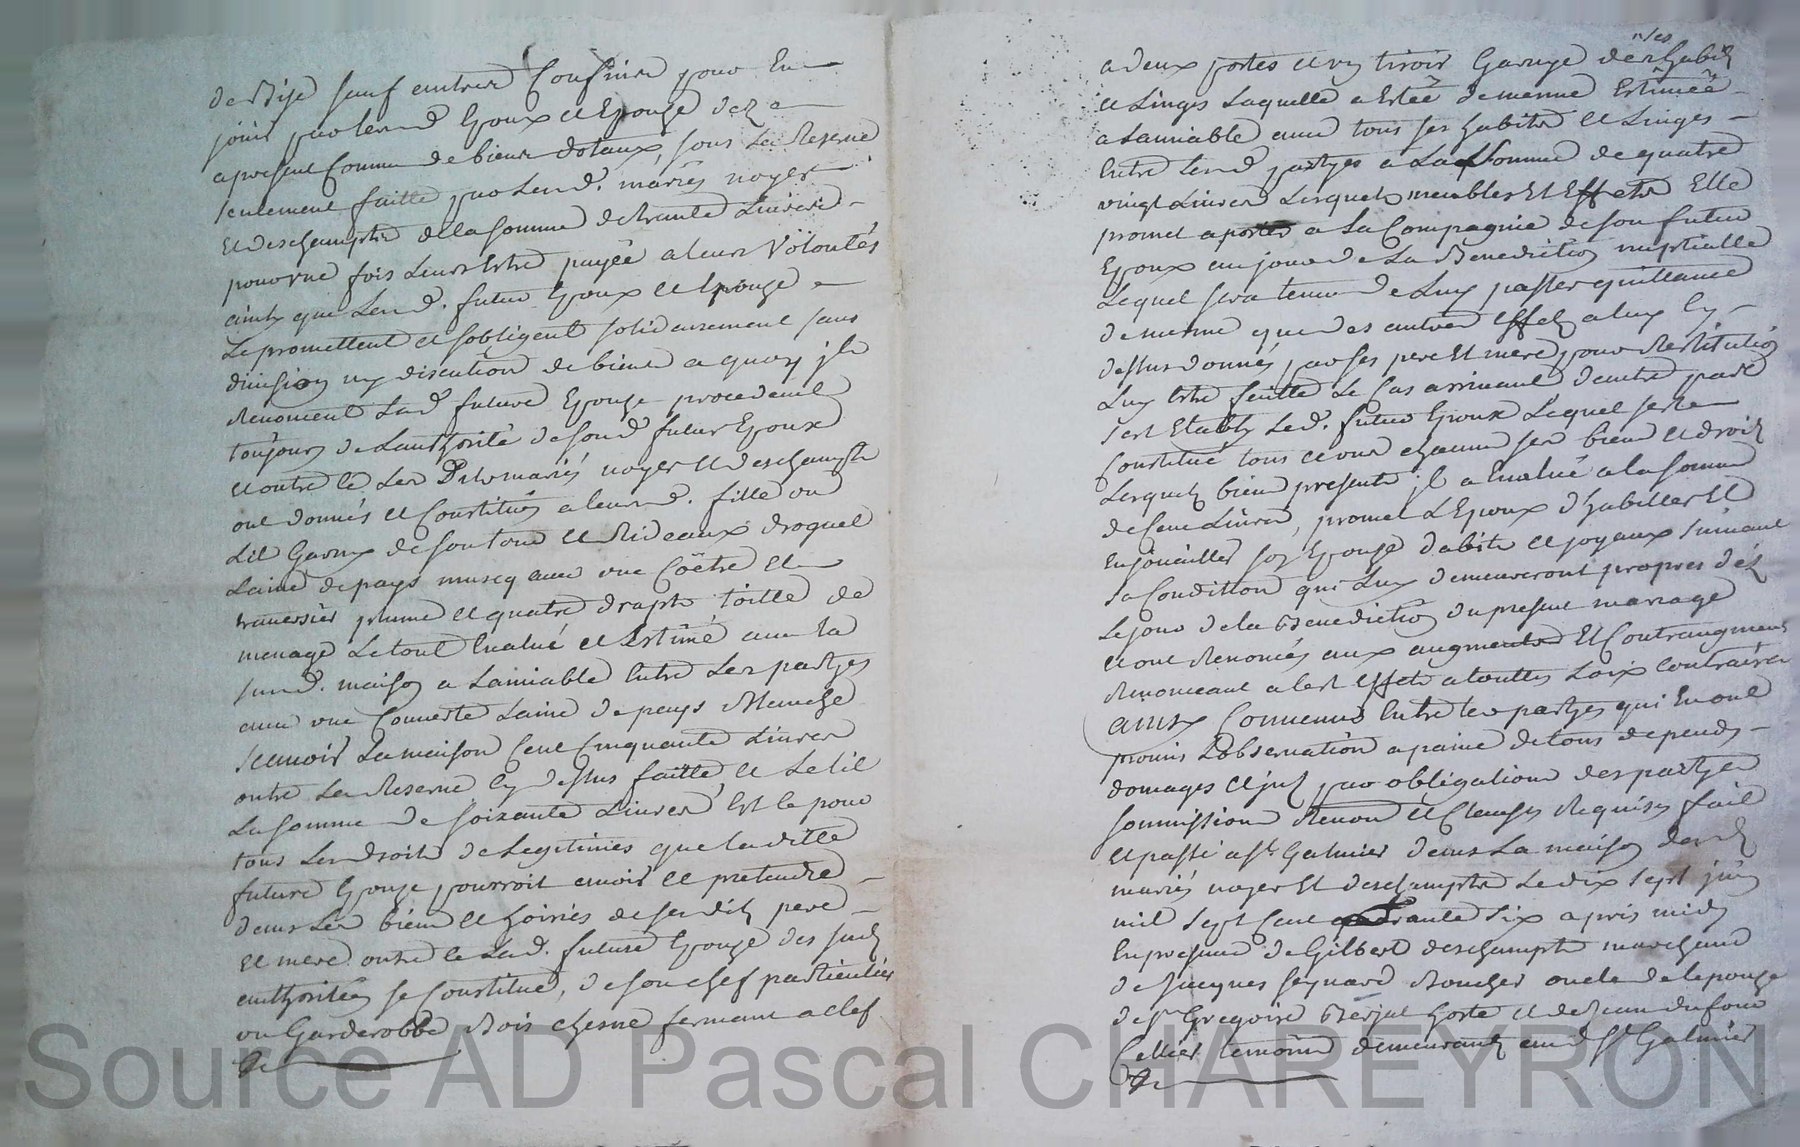 de Bise sauf autres Confins pour En
jouir par lesd. Epoux et Epouze dez a
present Comme de biens dotaux, sous La Reserve
seulement faitte par Lesd. mariés noyer
Et deschamptz de la somme de trante Livres
pour une fois Leur Estre payée a leur Volontés
ainsy que Lesd. futur Epoux et Epouze
Le promettent et sobligent solidairement sans
division ny discution de biens a quoy jls
Renoncent Lad. future Epouze procedant
toujours de Lauthorité de sond. futur Epoux
et outre ce Les Dits mariés noyer et deschamptz
ont donnés et Constitués a leurd. fille un
Lit Garny de son tour et Rideaux droguet
Laine de pays musq avec une Coëtre et
traversier plume et quatre draptz toille de
menage Le tout Evalué et Estimé avec la
susd. maison a Lamiable Entre Les partyes
avec une Couverte Laine de pays Blanche
scavoir La maison Cent Cinquante Livres
outre La Reserve Cy dessus faitte, et Le lit
La somme de soixante Livres, Et ce pour
tous Les droits de Legitimes que la ditte
future Epouze pourroit avoir et pretendre
dans Les biens et hoiries de ses dits pere
et mere outre ce Lad. future Epouze des susd.
authorités se Constitue, de son chef particulier
un Garderobbe Bois chesne fermant a clef
a deux portes et un tiroir Garnye de ses habits
et Linges Laquelle a Estée de meme Estimée
a Lamiable avec tous ses habits et Linges
Entre Lesd. partyes a La Somme de quatre
vingt Livres Lesquels meubles Et Effets Elle
promet aporter a La Compagnie de son futur
Epoux au jour de La Benediction nuptialle
Lequel sera tenu de Luy passer quittance
de meme que des autres effets a luy Cy
dessus donnés par ses pere Et mere pour Restitution
Luy Estre faitte Le Cas arrivant dautre part
sest Etably Led. futur Epoux Lequel sest
Constitué tous et uns chacuns ses biens et droits
Lesquels biens presents jl a Evalué a la somme
de Cent Livres, promet L'Epoux d'habiller Et
Enjoüailler son Epouze dabits et joyaux suivant
sa Condition qui Luy demeureront propres dés
Le jour de la Benediction du present mariage
et ont Renoncés aux augments Et Contraugments
Renonceant a cest effets a touttes Loix Contraires
ainsy Convenus Entre les partyes qui En ont
promis L'observation a paine de tous depends
domages et jnts par obligation des partyes
soumission Renon et Clauses Requises fait
et passé a St Galmier dans La maison desd.
mariés noyer Et deschamptz Le dix sept juin
mil sept Cent trante six apres midy
En presence de Gilbert deschamptz marchand
de Jacques peynard Boucher oncle de lepouze
de Sr Gregoire hoste et de Jean dufour
Cellier temoins demeurants aud. St Galmier
Source AD Pascal CHAREYRON